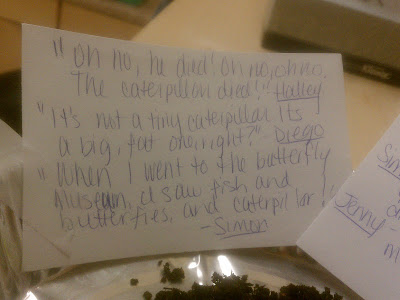 "Oh no, he died! Oh no, oh no.
The caterpillar died!" Halley
"It's not a tiny caterpillar. Its
a big, fat one, right?" - Diego
"When I went to the butterfly
Museum, I saw fish and
butterflies, and caterpillar!"
- Simon
Sim
Jenny -